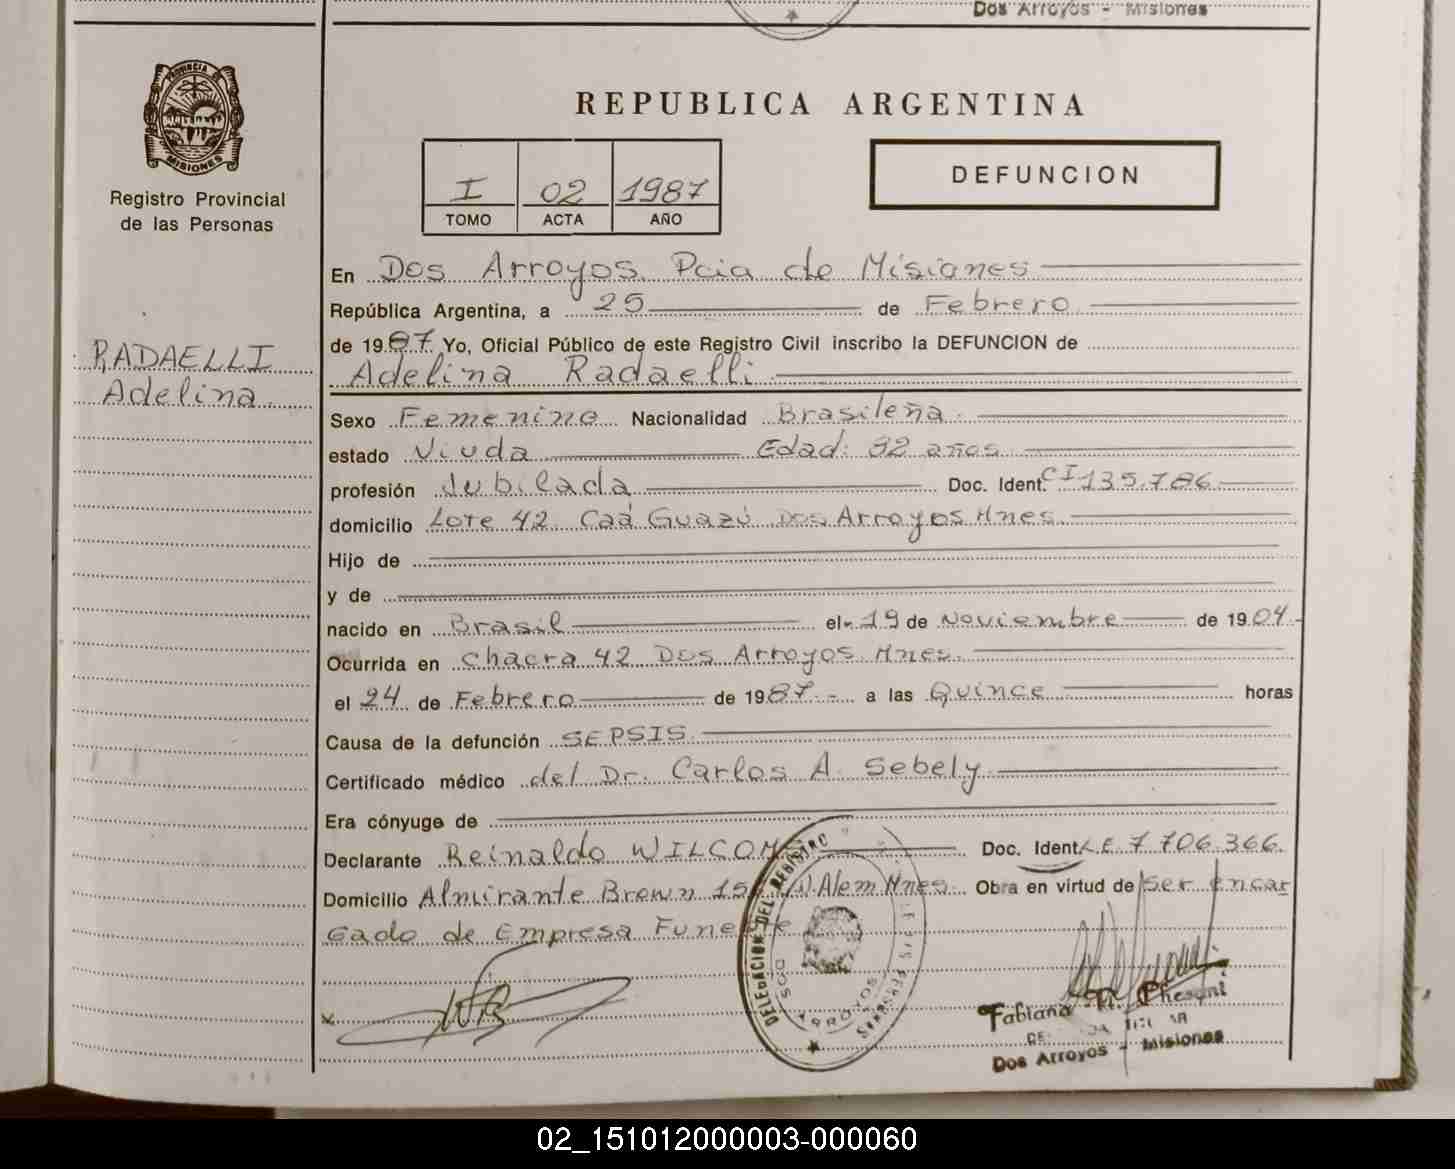 Dos Arroyos - Misiones
PROVINCIA DE
MISIONES
Registro Provincial
de las Personas
RADAELLI
Adelina
REPUBLICA ARGENTINA
I 02 1987
TOMO ACTA AÑO
DEFUNCION
En Dos Arroyos Pcia de Misiones
República Argentina, a 25 de Febrero
de 1987 Yo, Oficial Público de este Registro Civil inscribo la DEFUNCION de
Adelina Radaelli
Sexo Femenino Nacionalidad Brasileña
estado Viuda Edad: 82 años
profesión Jubilada Doc. Ident. CI 135.786
domicilio Lote 42 Caá Guazú Dos Arroyos Mnes.
Hijo de
y de
nacido en Brasil el 19 de Noviembre de 1904
Ocurrida en chacra 42 Dos Arroyos Mnes.
el 24 de Febrero de 1987 a las Quince horas
Causa de la defunción SEPSIS
Certificado médico del Dr. Carlos A. Sebely
Era cónyuge de
Declarante Reinaldo WILCOM Doc. Ident. LE 7 706.366
Domicilio Almirante Brown 15 Alem Mnes. Obra en virtud de ser encar
gado de Empresa Funebre
DELEGACION DEL REGISTRO
DE LAS PERSONAS
DOS ARROYOS
Fabiana
Dos Arroyos - Misiones
02_151012000003-000060